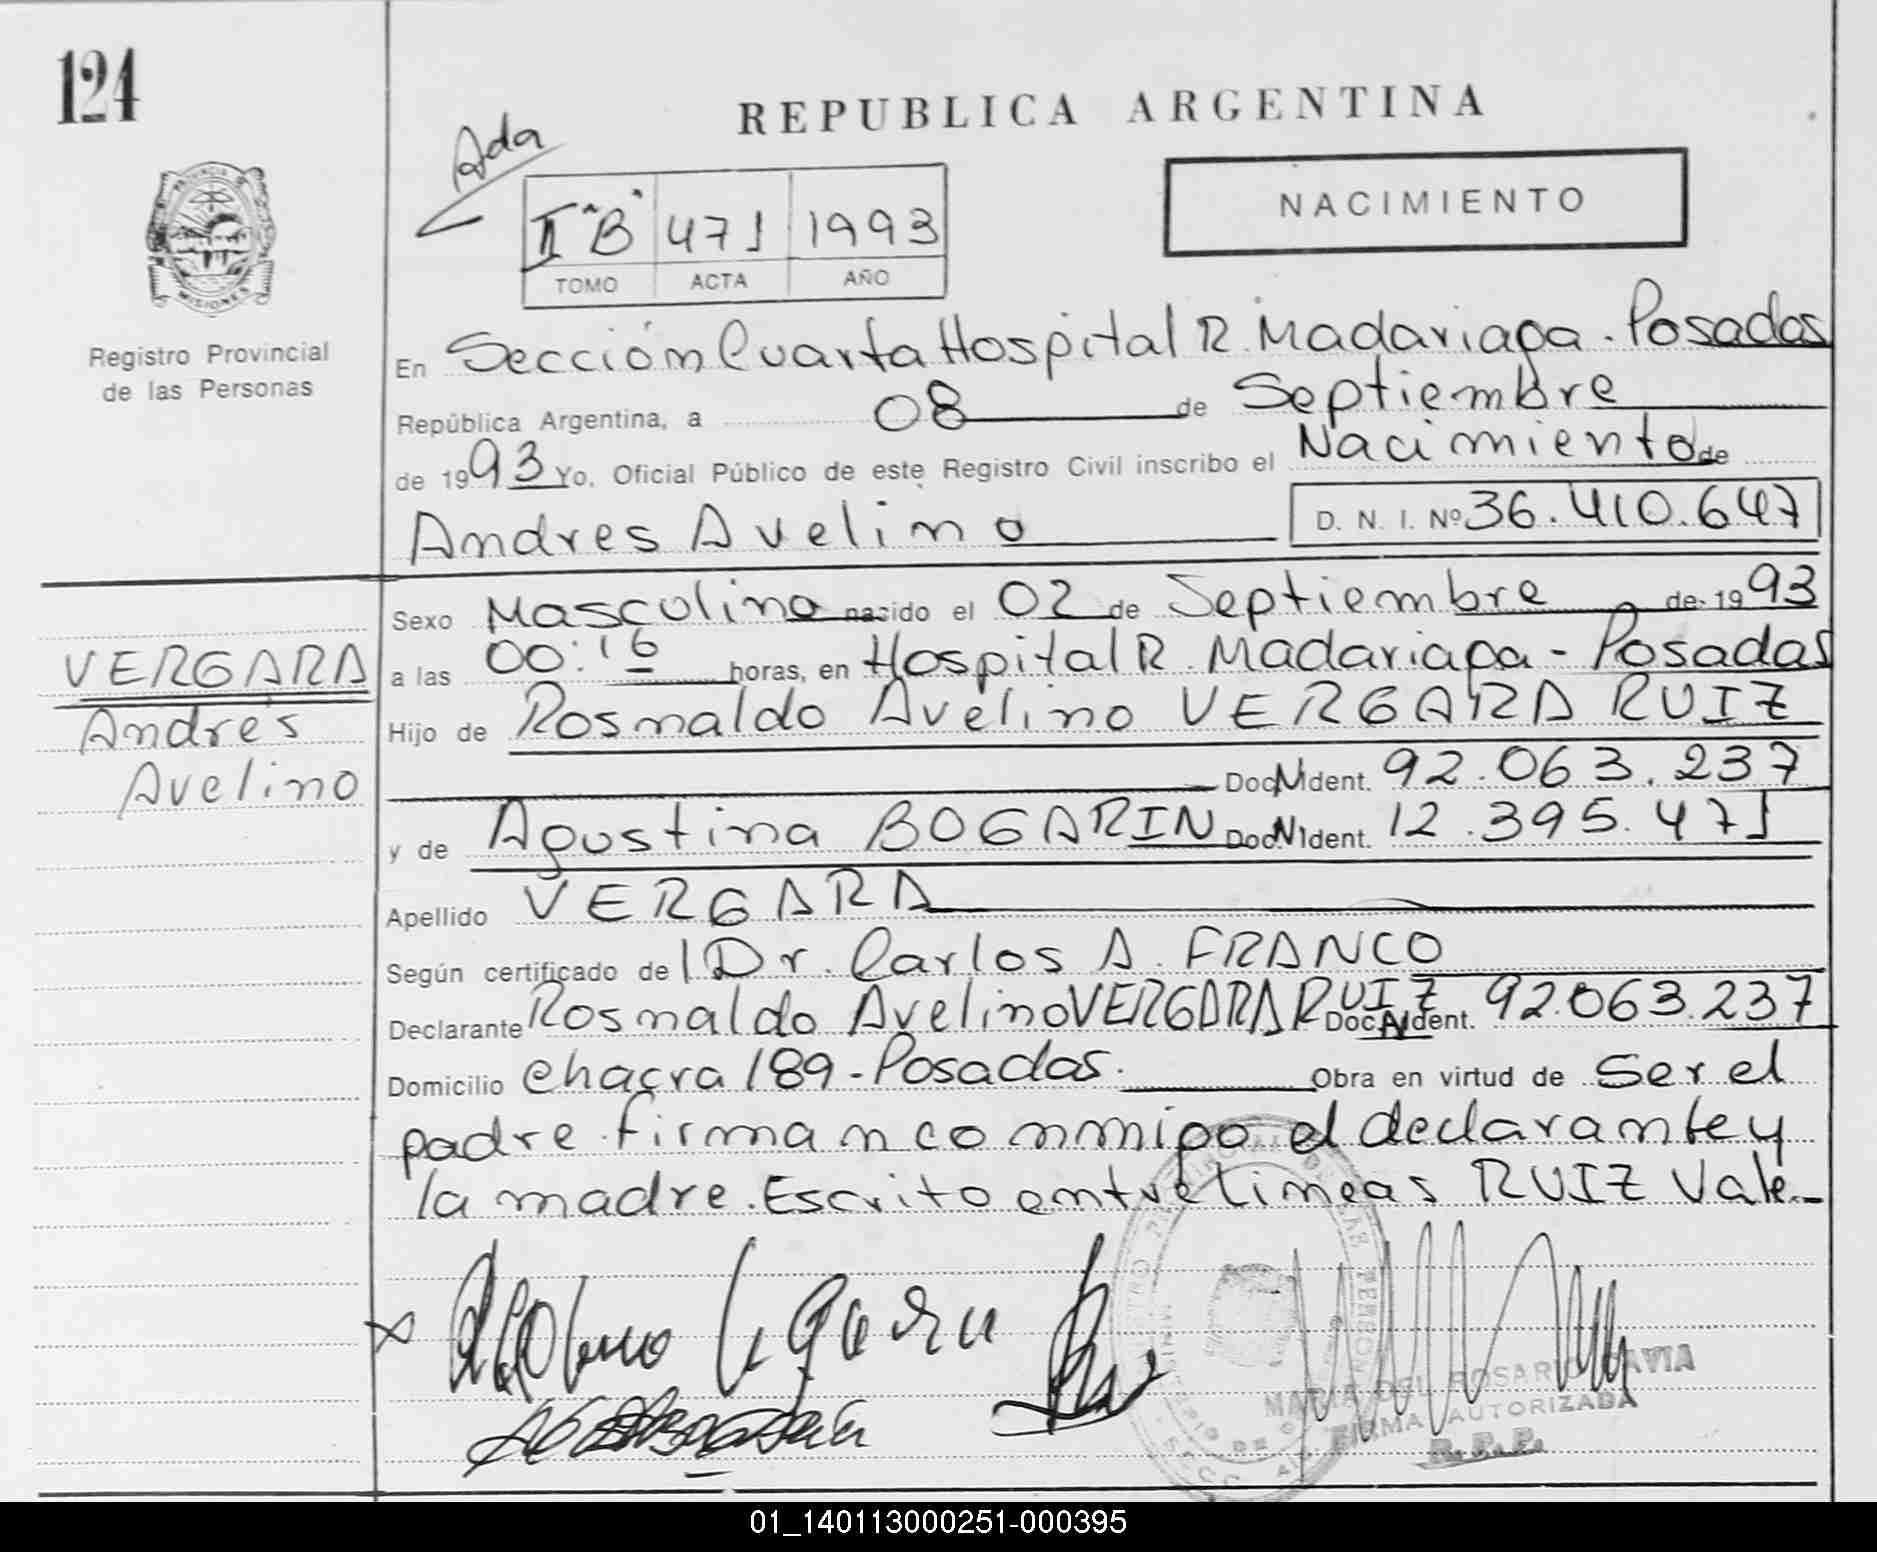 124
REPUBLICA ARGENTINA
Ada
NACIMIENTO
II "B" 471 1993
TOMO ACTA AÑO
PROVINCIA DE
MISIONES
Registro Provincial
de las Personas
En Sección Cuarta Hospital R. Madariaga - Posadas
República Argentina, a 08 de Septiembre
de 1993 Yo, Oficial Público de este Registro Civil inscribo el Nacimiento de
Andres Avelino D. N. I. Nº 36.410.647
Sexo Masculino nacido el 02 de Septiembre de 1993
a las 00:16 horas, en Hospital R. Madariaga - Posadas
VERGARA
Andrés
Avelino
Hijo de Rosnaldo Avelino VERGARA RUIZ
Doc. Ident. 92.063.237
y de Agustina BOGARIN Doc. Ident. 12.395.471
Apellido VERGARA
Según certificado de Dr. Carlos A. FRANCO
Declarante Rosnaldo Avelino VERGARA RUIZ Doc. Ident. 92.063.237
Domicilio chacra 189 - Posadas. Obra en virtud de Ser el
padre. firman conmigo el declarante y
la madre. Escrito entrelineas RUIZ Vale.-
MARIA DEL ROSARIO
FIRMA AUTORIZADA
R. P. P.
01_140113000251-000395